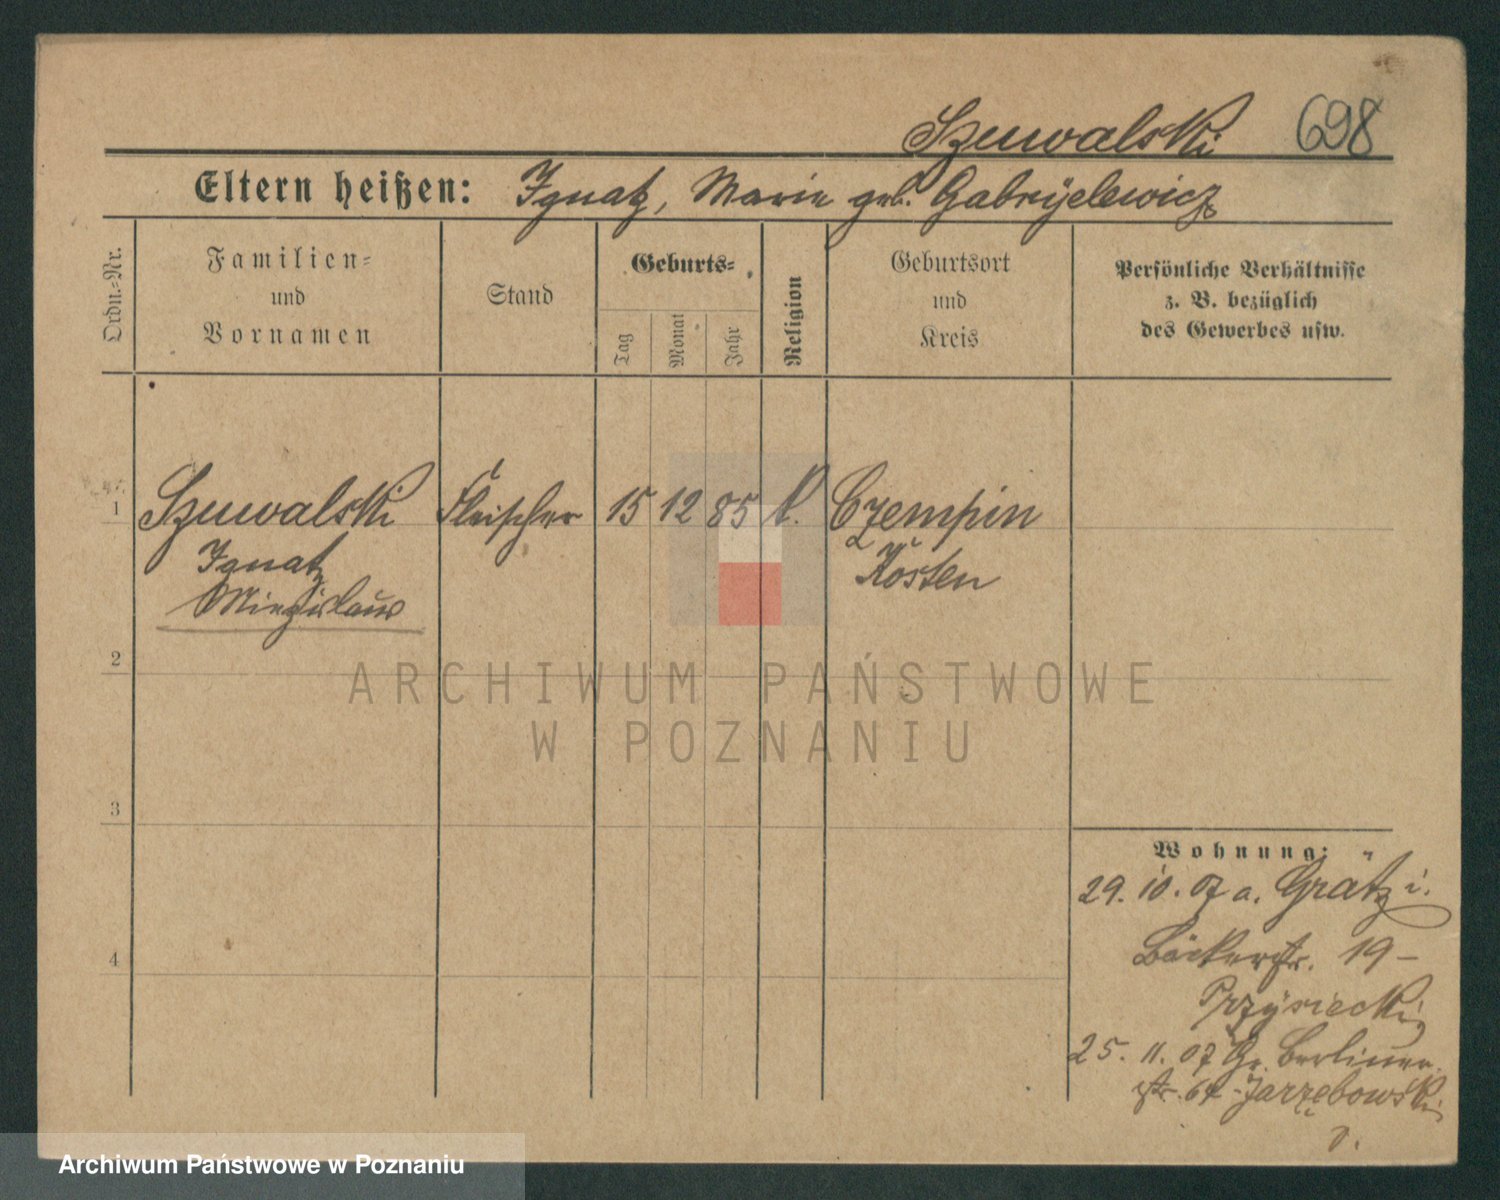 Szuwalski 698
Eltern heißen: Ignatz, Marie geb. Gabryelewicz
Ordn.-Nr.
Familien-
und
Vornamen
Stand
Geburts-
Tag
Monat
Jahr
Religion
Geburtsort
und
Kreis
Persönliche Verhältnisse
z. B. bezüglich
des Gewerbes usw.
1 Szuwalski Fleischer 15 12 85 k. Czempin
Ignatz Kosten
Miezislaus
2
3
4
Wohnung:
29. 10. 07 a. Grätz i.
Bäckerstr. 19 -
Przysiecki
25. 11. 07 Gr. Berliner
str. 64 - Jarzębowski
ARCHIWUM PAŃSTWOWE
W POZNANIU
Archiwum Państwowe w Poznaniu